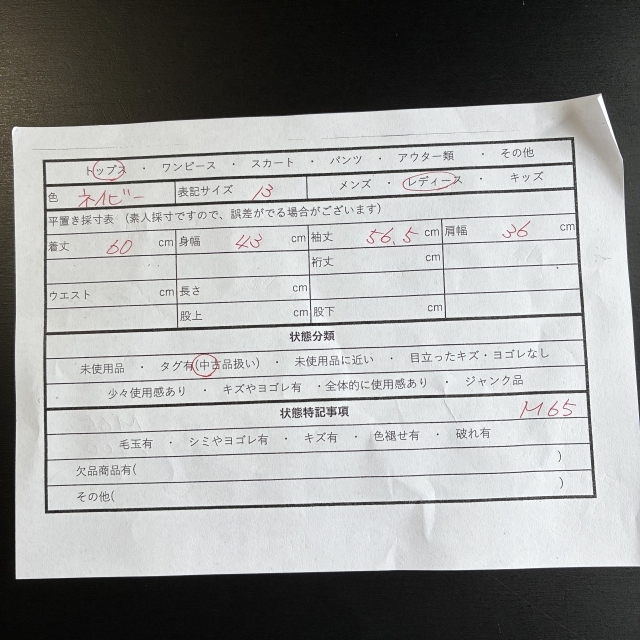 トップス ・ ワンピース ・ スカート ・ パンツ ・ アウター類 ・ その他
色 ネイビー 表記サイズ 13 メンズ ・ レディース ・ キッズ
平置き採寸表 (素人採寸ですので、誤差がでる場合がございます)
着丈 60 cm 身幅 43 cm 袖丈 56.5 cm 肩幅 36 cm
裄丈 cm
ウエスト cm 長さ cm
股上 cm 股下 cm
状態分類
未使用品 ・ タグ有(中古品扱い) ・ 未使用品に近い ・ 目立ったキズ・ヨゴレなし
少々使用感あり ・ キズやヨゴレ有 ・全体的に使用感あり ・ ジャンク品
状態特記事項 M65
毛玉有 ・ シミやヨゴレ有 ・ キズ有 ・ 色褪せ有 ・ 破れ有
欠品商品有( )
その他( )